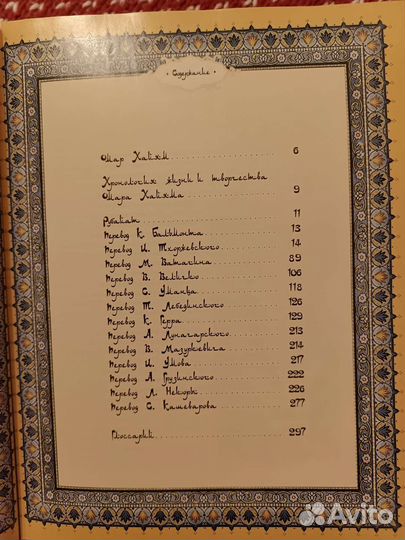 Содержание
Омар Хайям 6
Хронология жизни и творчества
Омара Хайяма 9
Рубайат 11
Перевод К. Бальмонта 13
Перевод И. Тхоржевского 14
Перевод М. Ватагина 89
Перевод В. Величко 106
Перевод С. Уманца 118
Перевод Т. Лебединского 126
Перевод К. Герра 129
Перевод А. Луначарского 213
Перевод В. Мазуркевича 214
Перевод И. Умова 217
Перевод А. Грузинского 222
Перевод Л. Некоры 226
Перевод С. Кашеварова 277
Глоссарий 297
Avito